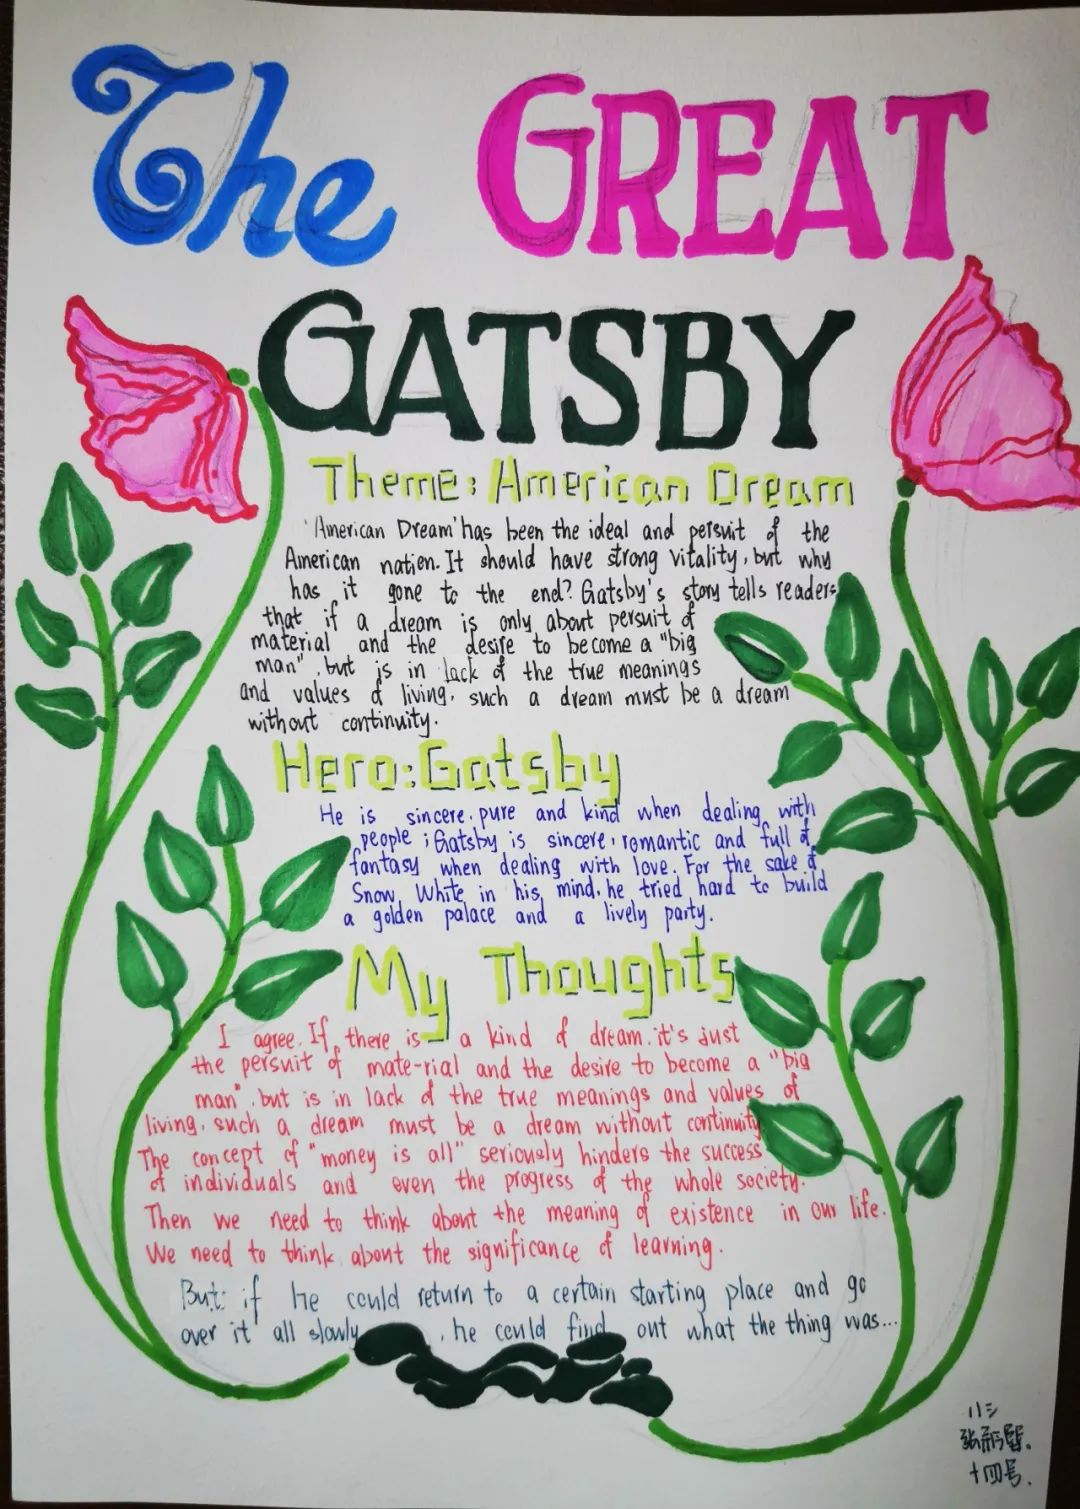 The GREAT
GATSBY
Theme: American Dream
'American Dream' has been the ideal and persuit of the
American nation. It should have strong vitality, but why
has it gone to the end? Gatsby's story tells readers
that if a dream is only about persuit of
material and the desire to become a "big
man", but is in lack of the true meanings
and values of living, such a dream must be a dream
without continuity.
Hero: Gatsby
He is sincere, pure and kind when dealing with
people; Gatsby is sincere, romantic and full of
fantasy when dealing with love. For the sake of
Snow White in his mind, he tried hard to build
a golden palace and a lively party.
My Thoughts
I agree. If there is a kind of dream, it's just
the persuit of mate-rial and the desire to become a "big
man", but is in lack of the true meanings and values of
living, such a dream must be a dream without continuity
The concept of "money is all" seriously hinders the success
of individuals and even the progress of the whole society.
Then we need to think about the meaning of existence in our life.
We need to think about the significance of learning.
But: if he could return to a certain starting place and go
over it all slowly, he could find out what the thing was...
八
张
十四号.